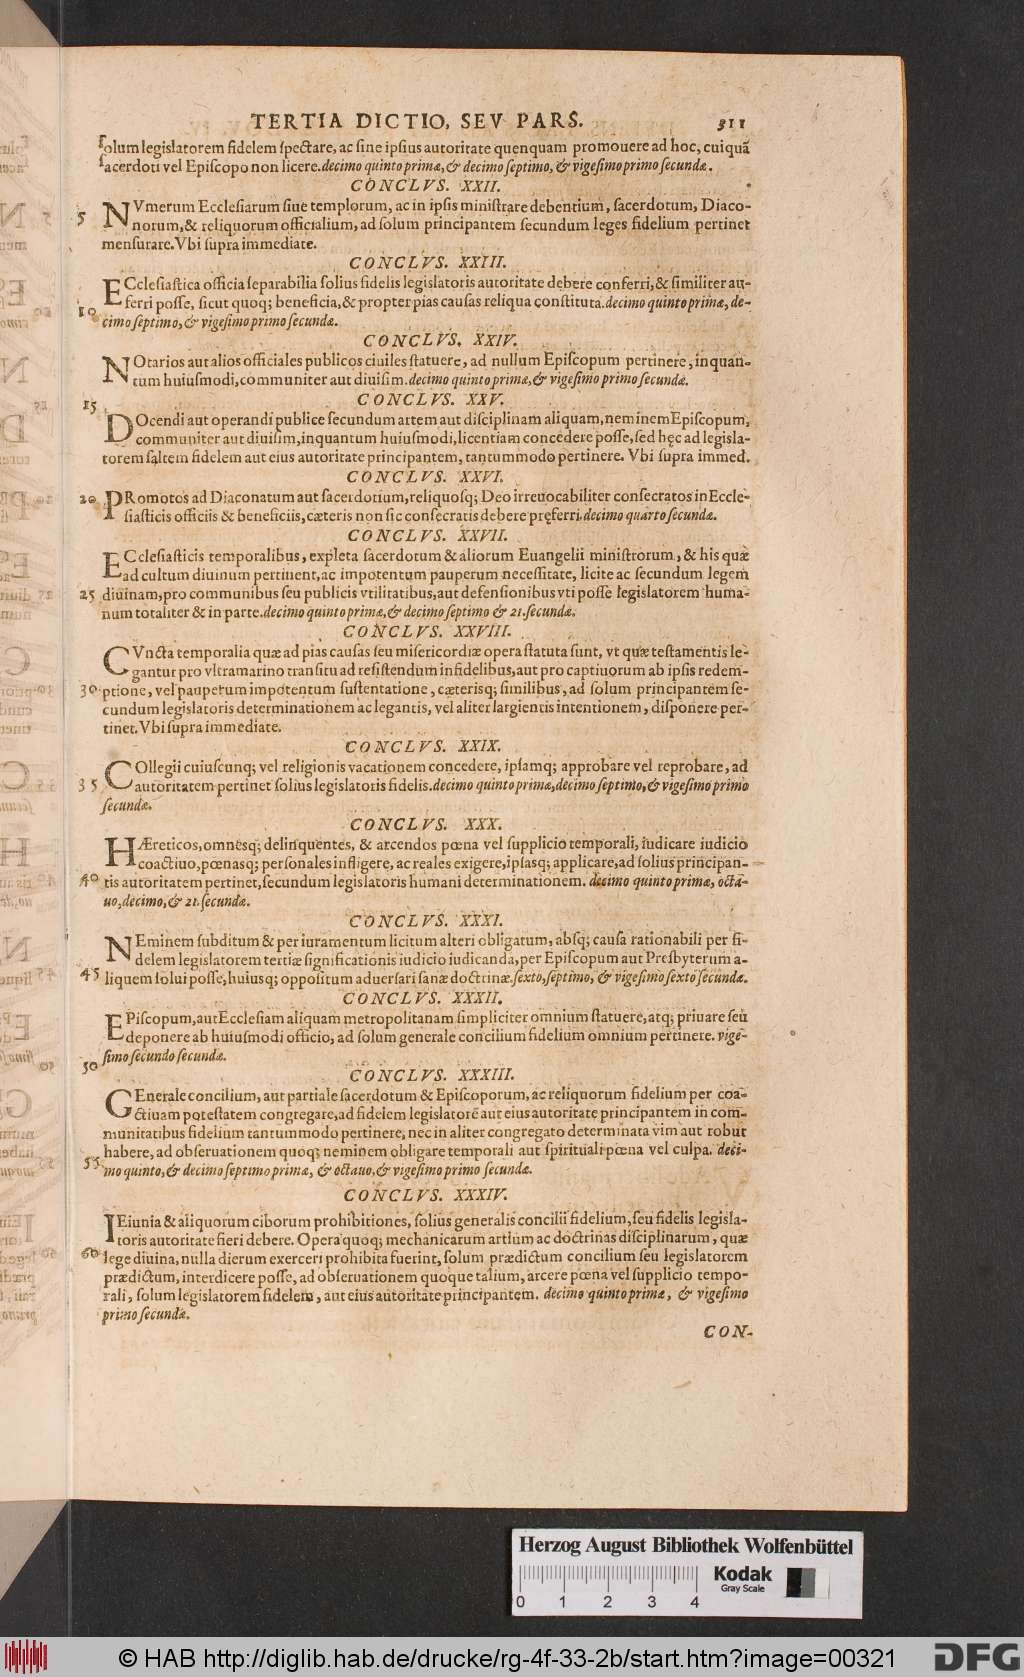 TERTIA DICTIO, SEV PARS. 311
ſolum legislatorem fidelem ſpectare, ac ſine ipſius autoritate quenquam promouere ad hoc, cuiquā
ſacerdoti vel Epiſcopo non licere. decimo quinto primæ, & decimo ſeptimo, & vigeſimo primo ſecundæ.
CONCLVS. XXII.
5 NVmerum Eccleſiarum ſiue templorum, ac in ipſis miniſtrare debentium, ſacerdotum, Diaco-
norum, & reliquorum officialium, ad ſolum principantem ſecundum leges fidelium pertinet
menſurare. Vbi ſupra immediate.
CONCLVS. XXIII.
ECcleſiaſtica officia ſeparabilia ſolius fidelis legislatoris autoritate debere conferri, & ſimiliter au-
10 ferri poſſe, ſicut quoq; beneficia, & propter pias cauſas reliqua conſtituta. decimo quinto primæ, de-
cimo ſeptimo, & vigeſimo primo ſecundæ.
CONCLVS. XXIV.
NOtarios aut alios officiales publicos ciuiles ſtatuere, ad nullum Epiſcopum pertinere, inquan-
tum huiuſmodi, communiter aut diuiſim. decimo quinto primæ, & vigeſimo primo ſecundæ.
15 CONCLVS. XXV.
DOcendi aut operandi publice ſecundum artem aut diſciplinam aliquam, neminem Epiſcopum,
communiter aut diuiſim, inquantum huiuſmodi, licentiam concedere poſſe, ſed hęc ad legisla-
torem ſaltem fidelem aut eius autoritate principantem, tantummodo pertinere. Vbi ſupra immed.
CONCLVS. XXVI.
20 PRomotos ad Diaconatum aut ſacerdotium, reliquoſq; Deo irreuocabiliter conſecratos in Eccle-
ſiaſticis officiis & beneficiis, cæteris non ſic conſecratis debere pręferri. decimo quarto ſecundæ.
CONCLVS. XXVII.
ECcleſiaſticis temporalibus, expleta ſacerdotum & aliorum Euangelii miniſtrorum, & his quæ
ad cultum diuinum pertinent, ac impotentum pauperum neceſſitate, licite ac ſecundum legem
25 diuinam, pro communibus ſeu publicis vtilitatibus, aut defenſionibus vti poſſe legislatorem huma-
num totaliter & in parte. decimo quinto primæ, & decimo ſeptimo & 21. ſecundæ.
CONCLVS. XXVIII.
CVncta temporalia quæ ad pias cauſas ſeu miſericordiæ opera ſtatuta ſunt, vt quæ teſtamentis le-
gantur pro vltramarino tranſitu ad reſiſtendum infidelibus, aut pro captiuorum ab ipſis redem-
30 ptione, vel pauperum impotentum ſuſtentatione, cæterisq; ſimilibus, ad ſolum principantem ſe-
cundum legislatoris determinationem ac legantis, vel aliter largientis intentionem, diſponere per-
tinet. Vbi ſupra immediate.
CONCLVS. XXIX.
COllegii cuiuſcunq; vel religionis vacationem concedere, ipſamq; approbare vel reprobare, ad
35 autoritatem pertinet ſolius legislatoris fidelis. decimo quinto primæ, decimo ſeptimo, & vigeſimo primo
ſecundæ.
CONCLVS. XXX.
HÆreticos, omnesq; delinquentes, & arcendos pœna vel ſupplicio temporali, iudicare iudicio
coactiuo, pœnasq; perſonales infligere, ac reales exigere, ipſasq; applicare, ad ſolius principan-
40 tis autoritatem pertinet, ſecundum legislatoris humani determinationem. decimo quinto primæ, octa-
uo, decimo, & 21. ſecundæ.
CONCLVS. XXXI.
NEminem ſubditum & per iuramentum licitum alteri obligatum, absq; cauſa rationabili per fi-
delem legislatorem tertiæ ſignificationis iudicio iudicanda, per Epiſcopum aut Presbyterum a-
45 liquem ſolui poſſe, huiusq; oppoſitum aduerſari ſanæ doctrinæ. ſexto, ſeptimo, & vigeſimo ſexto ſecundæ.
CONCLVS. XXXII.
EPiſcopum, aut Eccleſiam aliquam metropolitanam ſimpliciter omnium ſtatuere, atq; priuare ſeu
deponere ab huiuſmodi officio, ad ſolum generale concilium fidelium omnium pertinere. vige-
50 ſimo ſecundo ſecundæ.
CONCLVS. XXXIII.
GEnerale concilium, aut partiale ſacerdotum & Epiſcoporum, ac reliquorum fidelium per coa-
ctiuam poteſtatem congregare, ad fidelem legislatorē aut eius autoritate principantem in com-
munitatibus fidelium tantummodo pertinere, nec in aliter congregato determinata vim aut robur
habere, ad obſeruationem quoq; neminem obligare temporali aut ſpirituali pœna vel culpa. deci-
55 mo quinto, & decimo ſeptimo primæ, & octauo, & vigeſimo primo ſecundæ.
CONCLVS. XXXIV.
IEiunia & aliquorum ciborum prohibitiones, ſolius generalis concilii fidelium, ſeu fidelis legisla-
toris autoritate fieri debere. Opera quoq; mechanicarum artium ac doctrinas diſciplinarum, quæ
60 lege diuina, nulla dierum exerceri prohibita fuerint, ſolum prædictum concilium ſeu legislatorem
prædictum, interdicere poſſe, ad obſeruationem quoque talium, arcere pœna vel ſupplicio tempo-
rali, ſolum legislatorem fidelem, aut eius autoritate principantem. decimo quinto primæ, & vigeſimo
primo ſecundæ.
CON-
Herzog August Bibliothek Wolfenbüttel
0 1 2 3 4
Kodak
Gray Scale
© HAB http://diglib.hab.de/drucke/rg-4f-33-2b/start.htm?image=00321
DFG